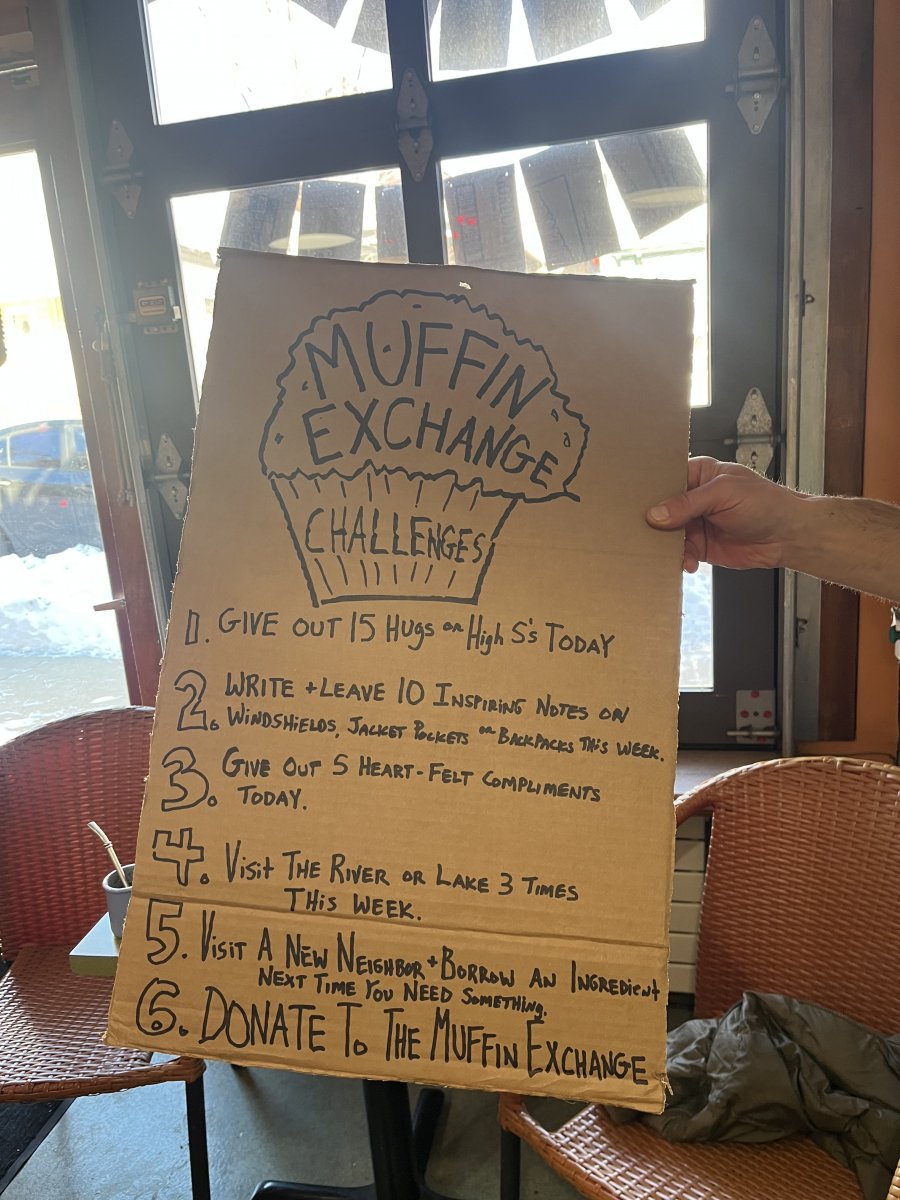 MUFFIN
EXCHANGE
CHALLENGES
1. GIVE OUT 15 HUGS OR HIGH 5'S TODAY
2. WRITE + LEAVE 10 INSPIRING NOTES ON
WINDSHIELDS, JACKET POCKETS OR BACKPACKS THIS WEEK.
3. GIVE OUT 5 HEART-FELT COMPLIMENTS
TODAY.
4. VISIT THE RIVER OR LAKE 3 TIMES
THIS WEEK.
5. VISIT A NEW NEIGHBOR + BORROW AN INGREDIENT
NEXT TIME YOU NEED SOMETHING.
6. DONATE TO THE MUFFIN EXCHANGE